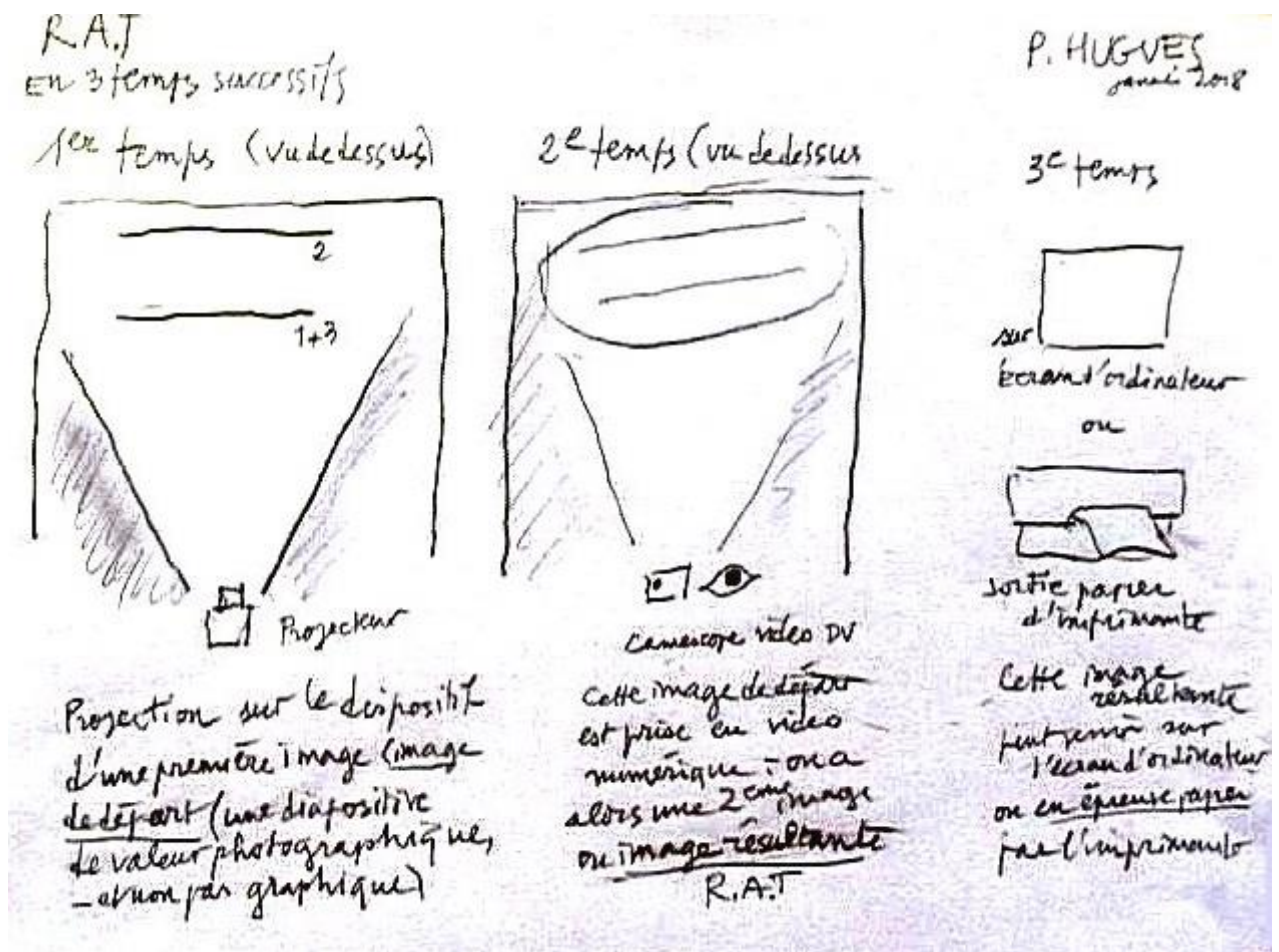 R.A.T
En 3 temps successifs
P. HUGUES
janvier 2018
1er temps (vu de dessus)
2
1+3
Projecteur
Projection sur le dispositif
d'une première image (image
de départ (une diapositive
de valeur photographique,
- et non pas graphique)
2e temps (vu de dessus
camescope vidéo DV
Cette image de départ
est prise en vidéo
numérique : on a
alors une 2ème image
ou image résultante
R.A.T
3e temps
sur
écran d'ordinateur
ou
sortie papier
d'imprimante
Cette image
résultante
peut servir sur
l'écran d'ordinateur
ou en épreuve papier
par l'imprimante